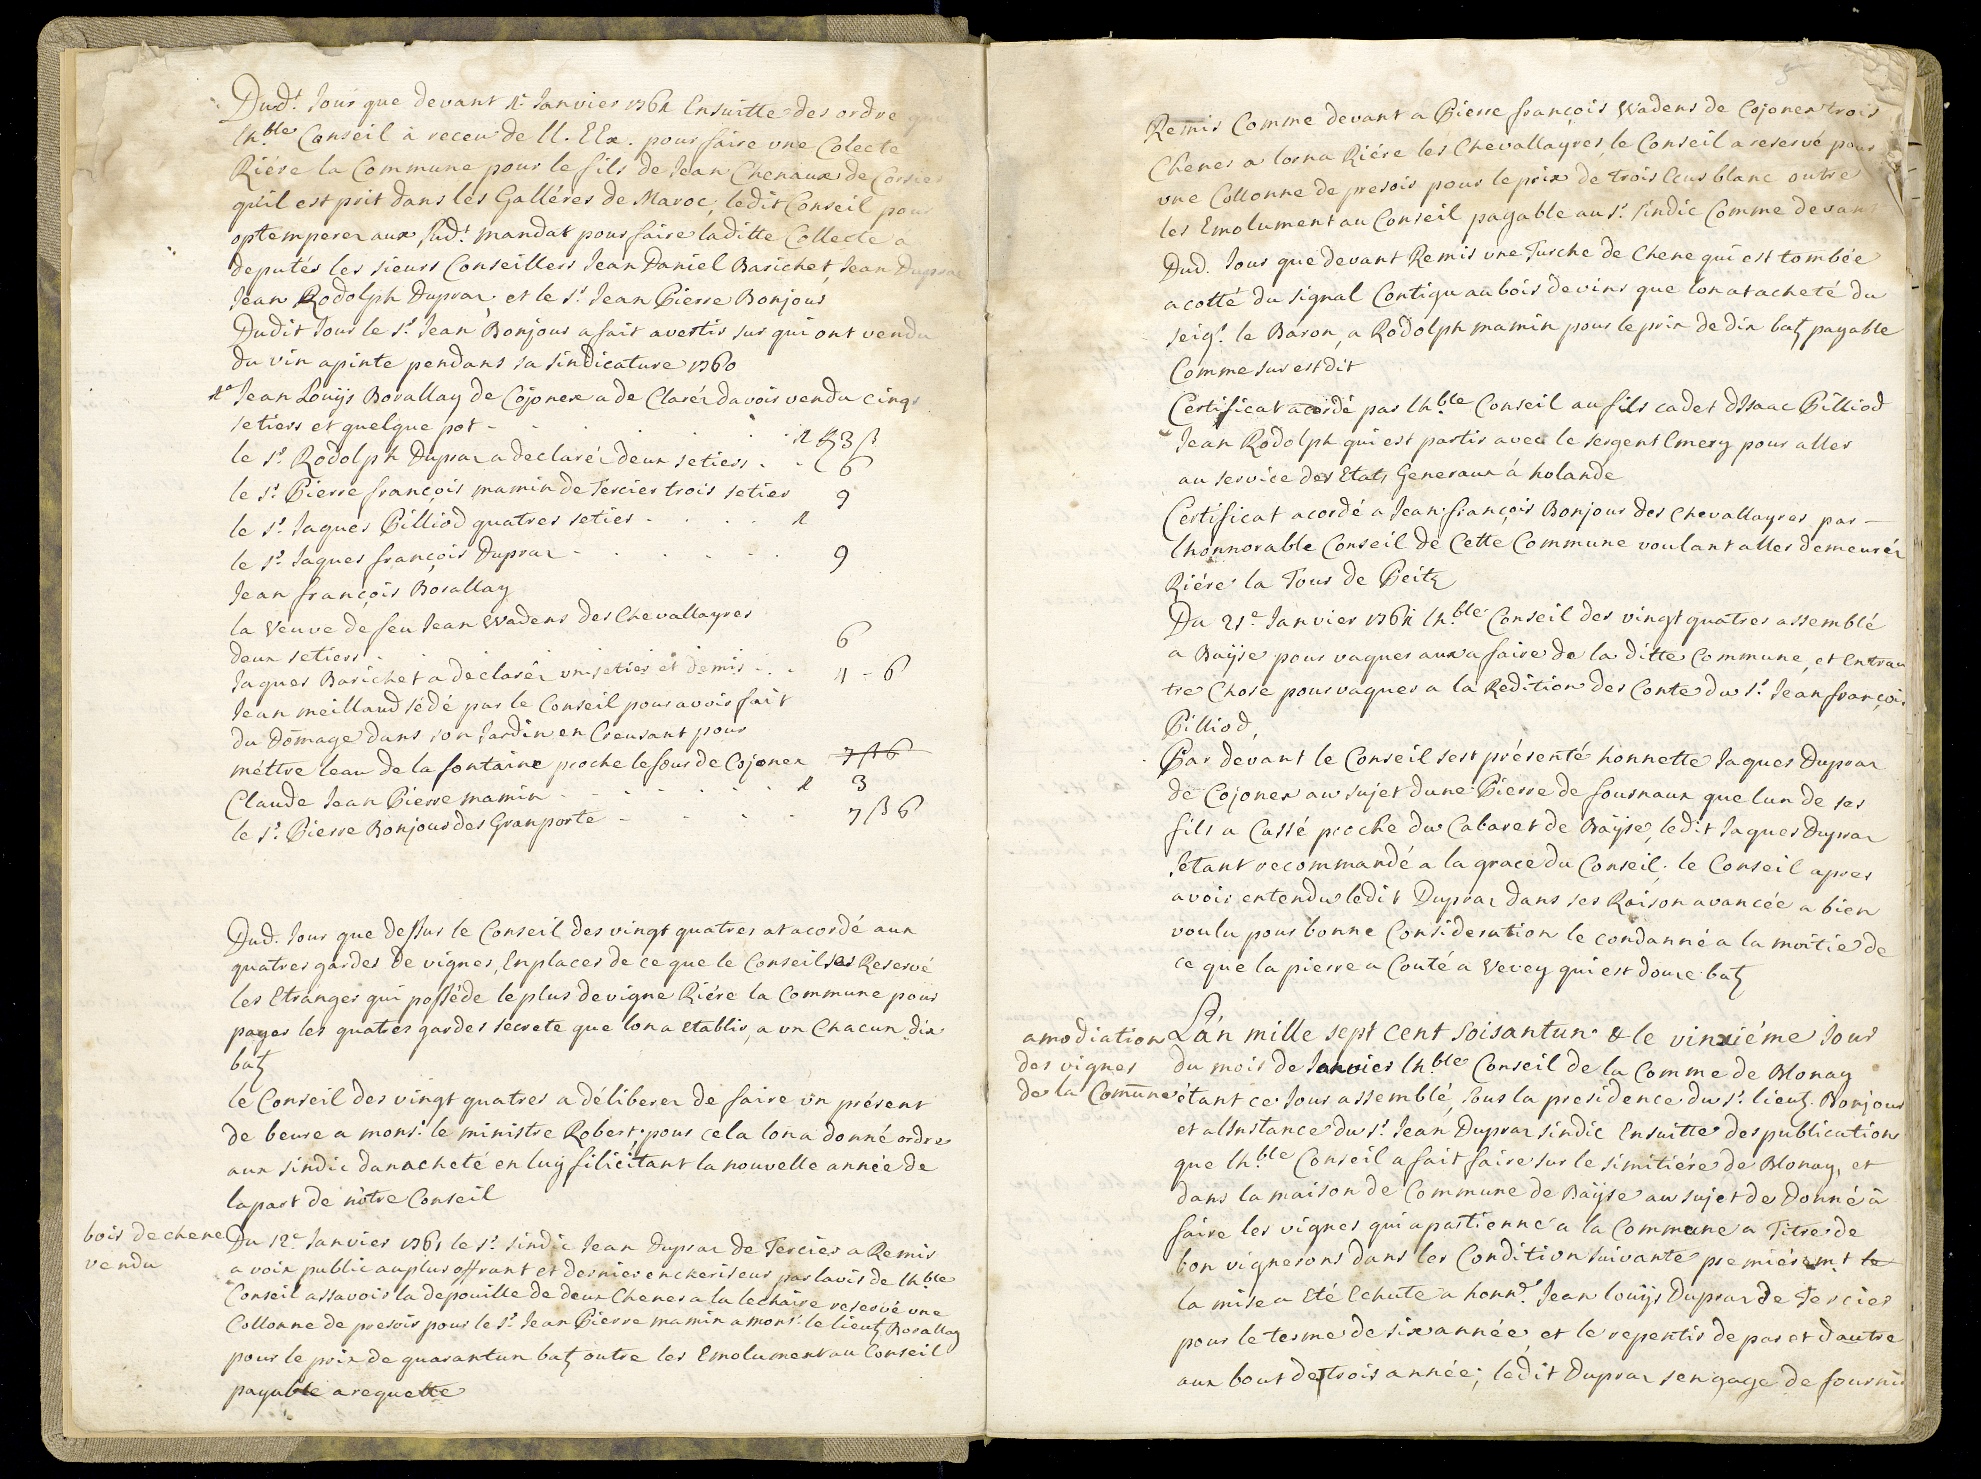 Dud.t Jour que devant 1.r Janvier 1761 Ensuitte des ordre que
lh.ble Conseil à receu de ll. EEx. pour faire une Colecte
Riére la Commune pour le fils de Jean Chenaux de Corsier
quil est prit dans les Galléres de Maroc; ledit Conseil pour
optemperer aux sud.t mandat pour faire laditte Collecte a
deputés les sieurs Conseillers Jean Daniel Barichet, Jean Duprar
Jean Rodolph Duprar et le S.r Jean Pierre Bonjour
Dudit Jour le S.r Jean Bonjour a fait avertir sur qui ont vendu
du vin apinte pendans sa sindicature 1760
1.o Jean Louÿs Borallay de Cojonex a de Clarér davoir vendu cinqs
setiers et quelque pot - 1 f 3 ß
le S.r Rodolph Duprar a declarér deux setiers - 6
le S.r Pierre françois mamin de Tercier trois setier 9
le S.r Jaques Pilliod quatres setier - 1
le S.r Jaques françois Duprar - 9
Jean françois Borallay
la Veuve de feu Jean Wadens des Chevallayres
deux setiers - 6
Jaques Barichet a declarér un setier et demis - 4 - 6
Jean meilland sédé par le Conseil pour avoir fait
du Dômage dans son Jardin en Creusant pour
méttre leau de la fontaine proche le four de Cojonex 7 ß 6
Claude Jean Pierre mamin - 1 3
le S.r Pierre Bonjour des Granporte - 7 ß 6
Dud. Jour que dessus le Conseil des vingt quatres at acordé aux
quatres gardes de vignes, En places de ce que le Conseil ses Reservé
les Etranger qui posséde le plus de vigne Riére la Commune pour
payer les quatres gardes secrete que lon a Etablir, a un Chacun dix
batz
le Conseil des vingt quatres a déliberer de faire un présent
de beure a mons.r le ministre Robert; pour cela lon a donné ordre
aux sindic dan acheté en luÿ filicitant la nouvelle année de
la part de nôtre Conseil
bois de chene
vendu
Du 12.e Janvier 1761 le S.r sindic Jean Duprar de Tercier a Remis
a voix public au plus offrant et dernier encheriseur par lavis de lh.ble
Conseil assavoir la depouille de deux Chenes a la lechaire reservé une
Collonne de presoir pour le S.r Jean Pierre mamin a mons.r le lieutz Borallay
pour le prix de quarantun batz outre les Emolument au Conseil
payable a requette
Remis Comme devant a Pierre françois Wadens de Cojonex trois
Chenes a lorna Riére les Chevallayres, le Conseil a reservé pour
une Collonne de presoir pour le prix de trois Ecus blanc outre
les Emolument au Conseil payable au S.r sindic Comme devant
Dud. Jour que devant Remis une Tusche de Chene qui est tombée
a cotté du signal Contigu au bois devins que lon at acheté du
seig.r le Baron, a Rodolph mamin pour le prix de dix batz payable
Comme sus est dit
Certificat acordé par lh.ble Conseil au fils cadet dIsaac Pilliod
Jean Rodolph qui est partir avec le sergent Emery pour aller
au service des Etats Generaux á holande
Certificat acordé a Jean françois Bonjour des Chevallayres par -
lhonnorable Conseil de Cette Commune voulant aller demeurér
Riére la Tour de Peitz
Du 21.e Janvier 1761 lh.ble Conseil des vingt quatres assemblé
a Baÿse pour vaquer aux afaire de la ditte Commune, et Entrau
tre Chose pour vaquer a la Redition des Conte du S.r Jean françois
Pilliod,
Par devant le Conseil sest présenté honnette Jaques Duprar
de Cojonex au sujet dune Pierre de fournaux que lun de ses
fils a Cassé proche du Cabaret de Baÿse, ledit Jaques Duprar
sétant recommandé a la grace du Conseil; le Conseil apres
avoir entendu ledit Duprar dans ses Raison avancée a bien
voulu pour bonne Consideration le condanné a la moitie de
ce que la pierre a Couté a Vevey qui est douze batz
amodiation
des vignes
de la Commune
Lán mille sept cent soisantun & le vinxiéme Jour
du mois de Janvier lh.ble Conseil de la Comme de Blonay
étant ce Jour assemblé, sous la presidence du S.r lieutz. Bonjour
et a lInstance du S.r Jean Duprar sindic Ensuitte des publications
que lh.ble Conseil a fait faire sur le simitiére de Blonay, et
dans la maison de Commune de Baÿse au sujet de Donné à
faire les vignes qui apartienne a la Commune a Titre de
bon vignerons dans les Condition suivante premiérem.t le
la mise a Eté Echute a honn.d Jean louÿs Duprar de Tercier
pour le terme de six année, et le repentir de par et dautre
aux bout de trois année; ledit Duprar sengage de fournir